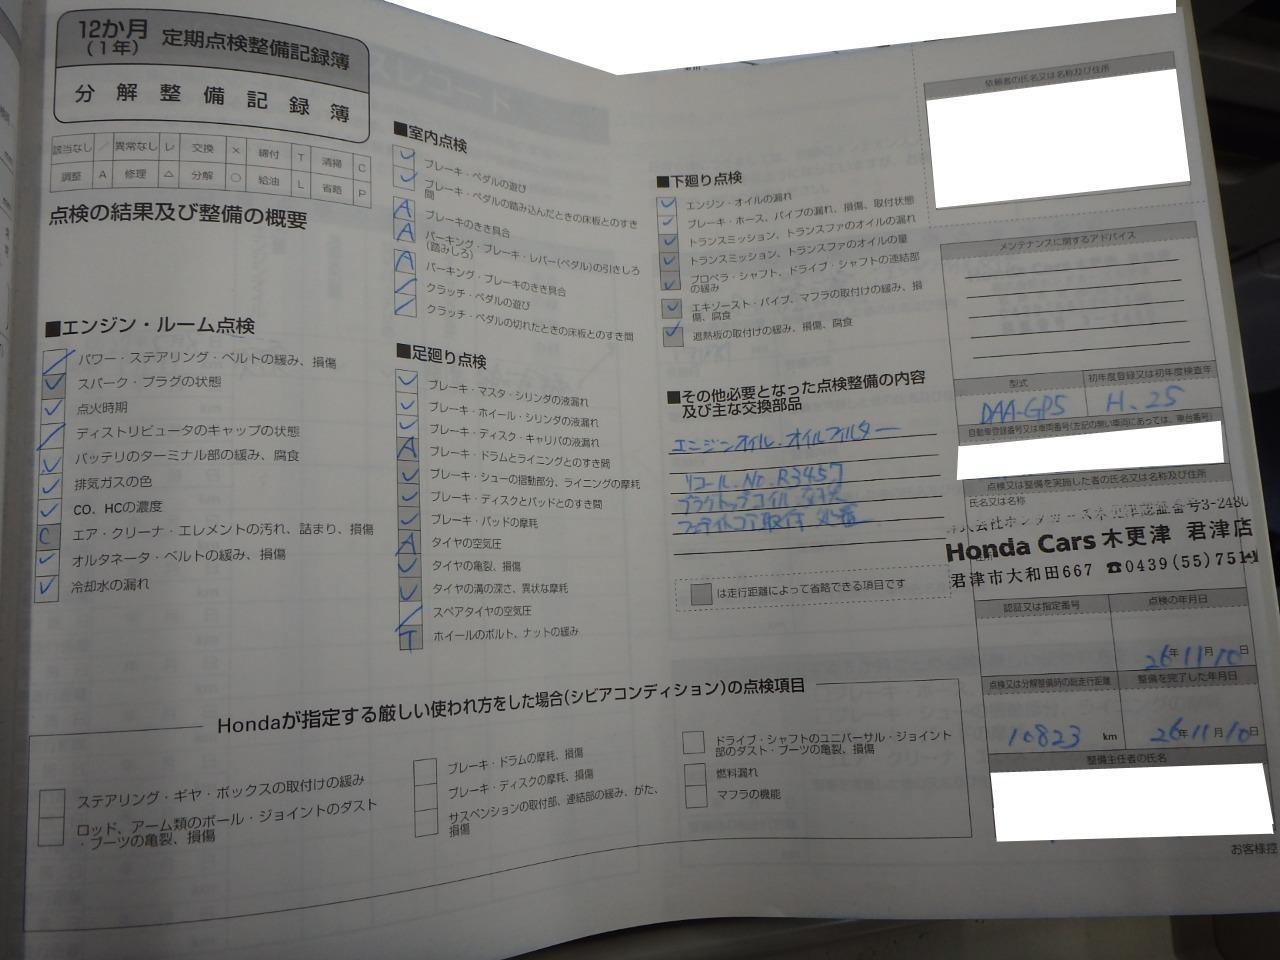 12か月
(1年)
定期点検整備記録簿
分解整備記録簿
該当なし / 異常なし レ 交換 × 締付 T 清掃 C
調整 A 修理 △ 分解 ○ 給油 L 省略 P
点検の結果及び整備の概要
■エンジン・ルーム点検
パワー・ステアリング・ベルトの緩み、損傷
スパーク・プラグの状態
点火時期
ディストリビュータのキャップの状態
バッテリのターミナル部の緩み、腐食
排気ガスの色
CO、HCの濃度
C エア・クリーナ・エレメントの汚れ、詰まり、損傷
オルタネータ・ベルトの緩み、損傷
冷却水の漏れ
■室内点検
ブレーキ・ペダルの遊び
ブレーキ・ペダルの踏み込んだときの床板とのすき間
A ブレーキのきき具合
A パーキング・ブレーキ・レバー(ペダル)の引きしろ(踏みしろ)
A パーキング・ブレーキのきき具合
クラッチ・ペダルの遊び
クラッチ・ペダルの切れたときの床板とのすき間
■足廻り点検
ブレーキ・マスタ・シリンダの液漏れ
ブレーキ・ホイール・シリンダの液漏れ
ブレーキ・ディスク・キャリパの液漏れ
A ブレーキ・ドラムとライニングとのすき間
ブレーキ・シューの摺動部分、ライニングの摩耗
ブレーキ・ディスクとパッドとのすき間
ブレーキ・パッドの摩耗
A タイヤの空気圧
タイヤの亀裂、損傷
タイヤの溝の深さ、異状な摩耗
スペアタイヤの空気圧
T ホイールのボルト、ナットの緩み
■下廻り点検
エンジン・オイルの漏れ
ブレーキ・ホース、パイプの漏れ、損傷、取付状態
トランスミッション、トランスファのオイルの漏れ
トランスミッション、トランスファのオイルの量
プロペラ・シャフト、ドライブ・シャフトの連結部の緩み
エキゾースト・パイプ、マフラの取付けの緩み、損傷、腐食
遮熱板の取付けの緩み、損傷、腐食
■その他必要となった点検整備の内容
及び主な交換部品
エンジンオイル・オイルフィルター
リコール.No.R3457
は走行距離によって省略できる項目です
依頼者の氏名又は名称及び住所
メンテナンスに関するアドバイス
型式 初年度登録又は初年度検査年
DAA-GP5 H.25
自動車登録番号又は車両番号(左記の無い車両にあっては、車台番号)
点検又は整備を実施した者の氏名又は名称及び住所
氏名又は名称
Honda Cars 木更津 君津店
君津市大和田667 ☎0439(55)7511
認証又は指定番号 点検の年月日
26年11月10日
点検又は分解整備時の総走行距離 整備を完了した年月日
10823 km 26年11月10日
整備主任者の氏名
お客様控
Hondaが指定する厳しい使われ方をした場合(シビアコンディション)の点検項目
ステアリング・ギヤ・ボックスの取付けの緩み
ロッド、アーム類のボール・ジョイントのダスト
・ブーツの亀裂、損傷
ブレーキ・ドラムの摩耗、損傷
ブレーキ・ディスクの摩耗、損傷
サスペンションの取付部、連結部の緩み、がた、
損傷
ドライブ・シャフトのユニバーサル・ジョイント
部のダスト・ブーツの亀裂、損傷
燃料漏れ
マフラの機能